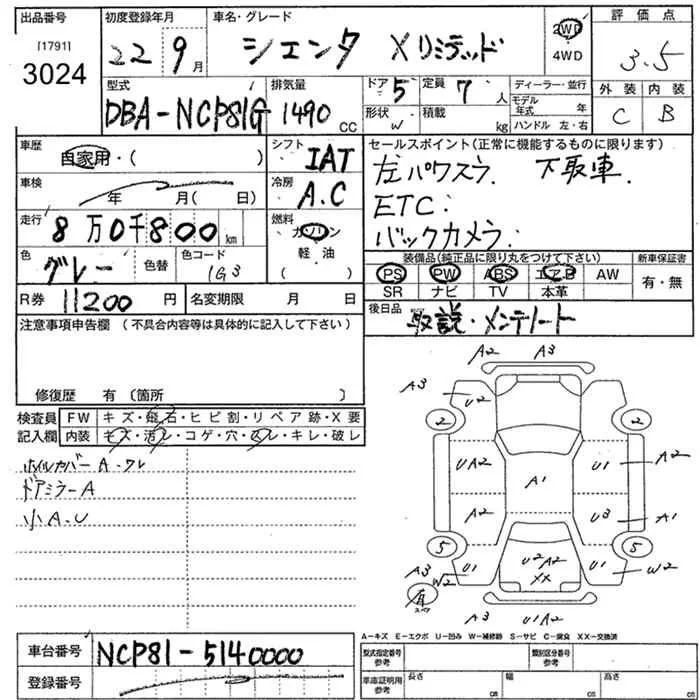 出品番号 初度登録年月 車名・グレード 評価点
[1791] 3024 22 9月 シエンタ Xリミテッド 2WD 4WD 3.5
型式 排気量 ドア 5 定員 7人 ディーラー・並行 外装 内装
DBA-NCP81G 1490 CC 形状 W 積載 kg モデル年式 年 ハンドル 左・右 C B
車歴 自家用・( ) シフト IAT セールスポイント(正常に機能するものに限ります)
車検 年 月( 日) 冷房 A.C 左パワスラ. 下取車.
ETC.
走行 8万0千800km 燃料 ガソリン 軽油 ( ) バックカメラ.
色 グレー 色替 色コード 1G3 装備品(純正品に限り丸をつけて下さい) 新車保証書
PS PW ABS エアB AW 有・無
SR ナビ TV 本革
R券 11200円 名変期限 月 日 後日品 取説・メンテノート
注意事項申告欄 (不具合内容等は具体的に記入して下さい)
修復歴 有 〔箇所 〕
検査員記入欄 FW キズ・飛石・ヒビ割・リペア跡・X要
内装 キズ・汚レ・コゲ・穴・スレ・キレ・破レ
ホイルカバーA.ワレ
ドアミラーA
小A.U
A2 A3
A3 U2
2 2
UA2 A1 U1 A2
A2 U3 A1
5 5
A3 W2 U1 U2 A2 XX U1 W2
有 スペア
A3 U1A2
A-キズ E-エクボ U-凹み W-補修跡 S-サビ C-腐食 XX-交換済
車台番号 NCP81-5140000
登録番号
型式指定番号 参考 類別区分番号 参考
車庫証明用 参考 長さ cm 幅 cm 高さ cm